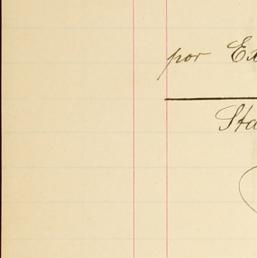 por Ex
Sta